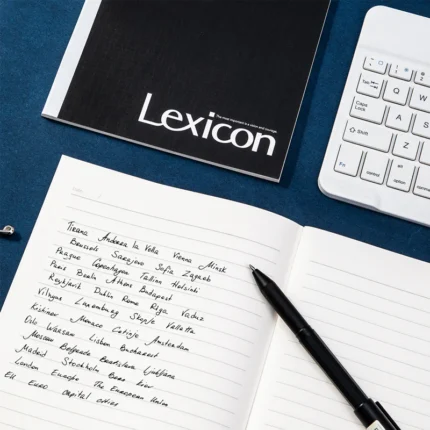 Lexicon
Tirana Andorra la Vella Vienna Minsk
Brussels Sarajevo Sofia Zagreb
Prague Copenhagen Tallinn Helsinki
Paris Berlin Athens Budapest
Reykjavik Dublin Rome Riga Vaduz
Vilnyus Luxemburg Skopje Valletta
Kishinev Monaco Cetinje Amsterdam
Oslo Warsaw Lisbon Bucharest
Moscow Belgrade Bratislava Ljubljana
Madrid Stockholm Bern Kiev
London Europe The European Union
EU Euro capital cities
Q W
Caps Lock A S
Shift Z
Fn control option